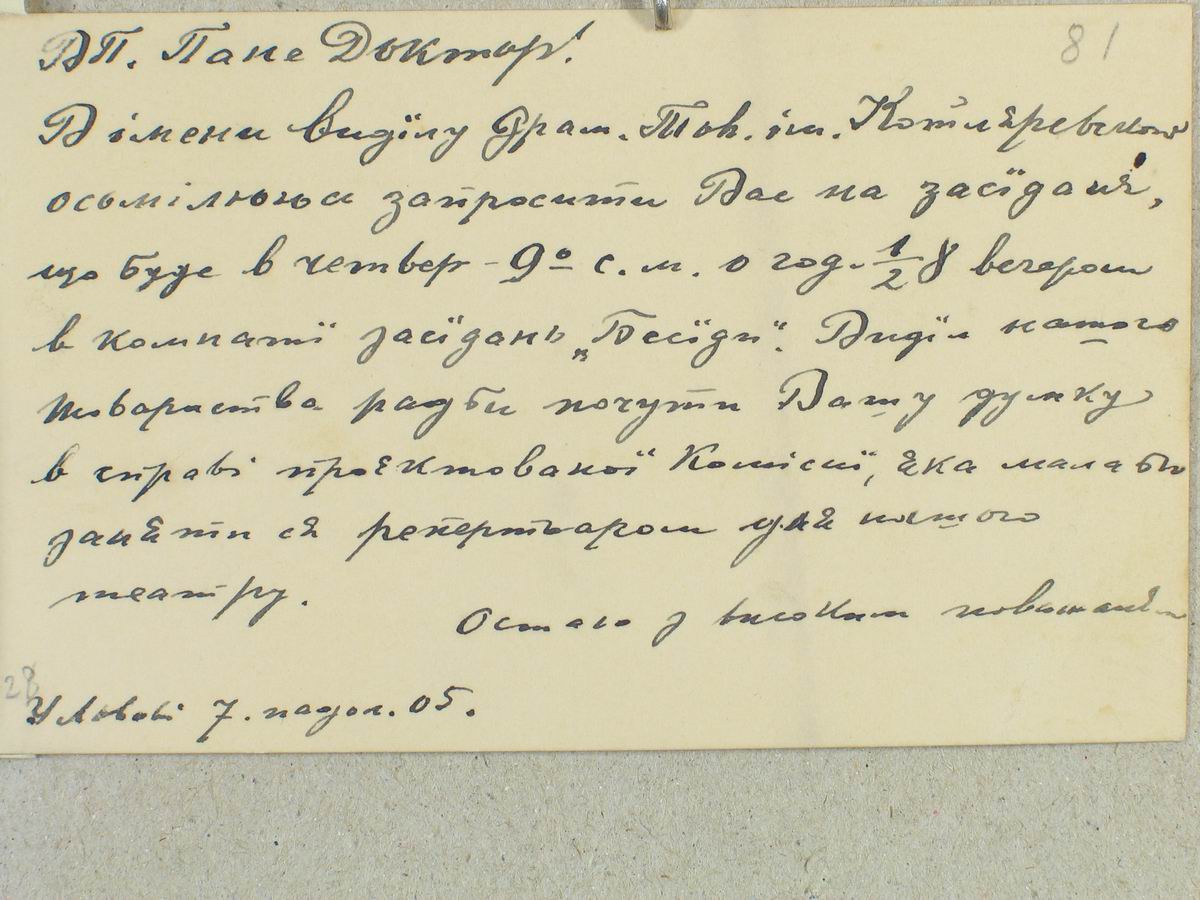 81
ВП. Пане Доктор!
В імени виділу Драм. Тов. ім. Котляревского
осьмілююся запросити Вас на засїданя,
що буде в четвер - 9º с. м. о год. 1/2 8 вечером
в комнатї засїдань „Бесїди". Виділ нашого
товариства радби почути Вашу думку
в справі проєктованої Комісиї, яка малаби
заняти ся репертваром для нашого
театру.
Остаю з високим поважанєм
28
У Львові 7. падол. 05.